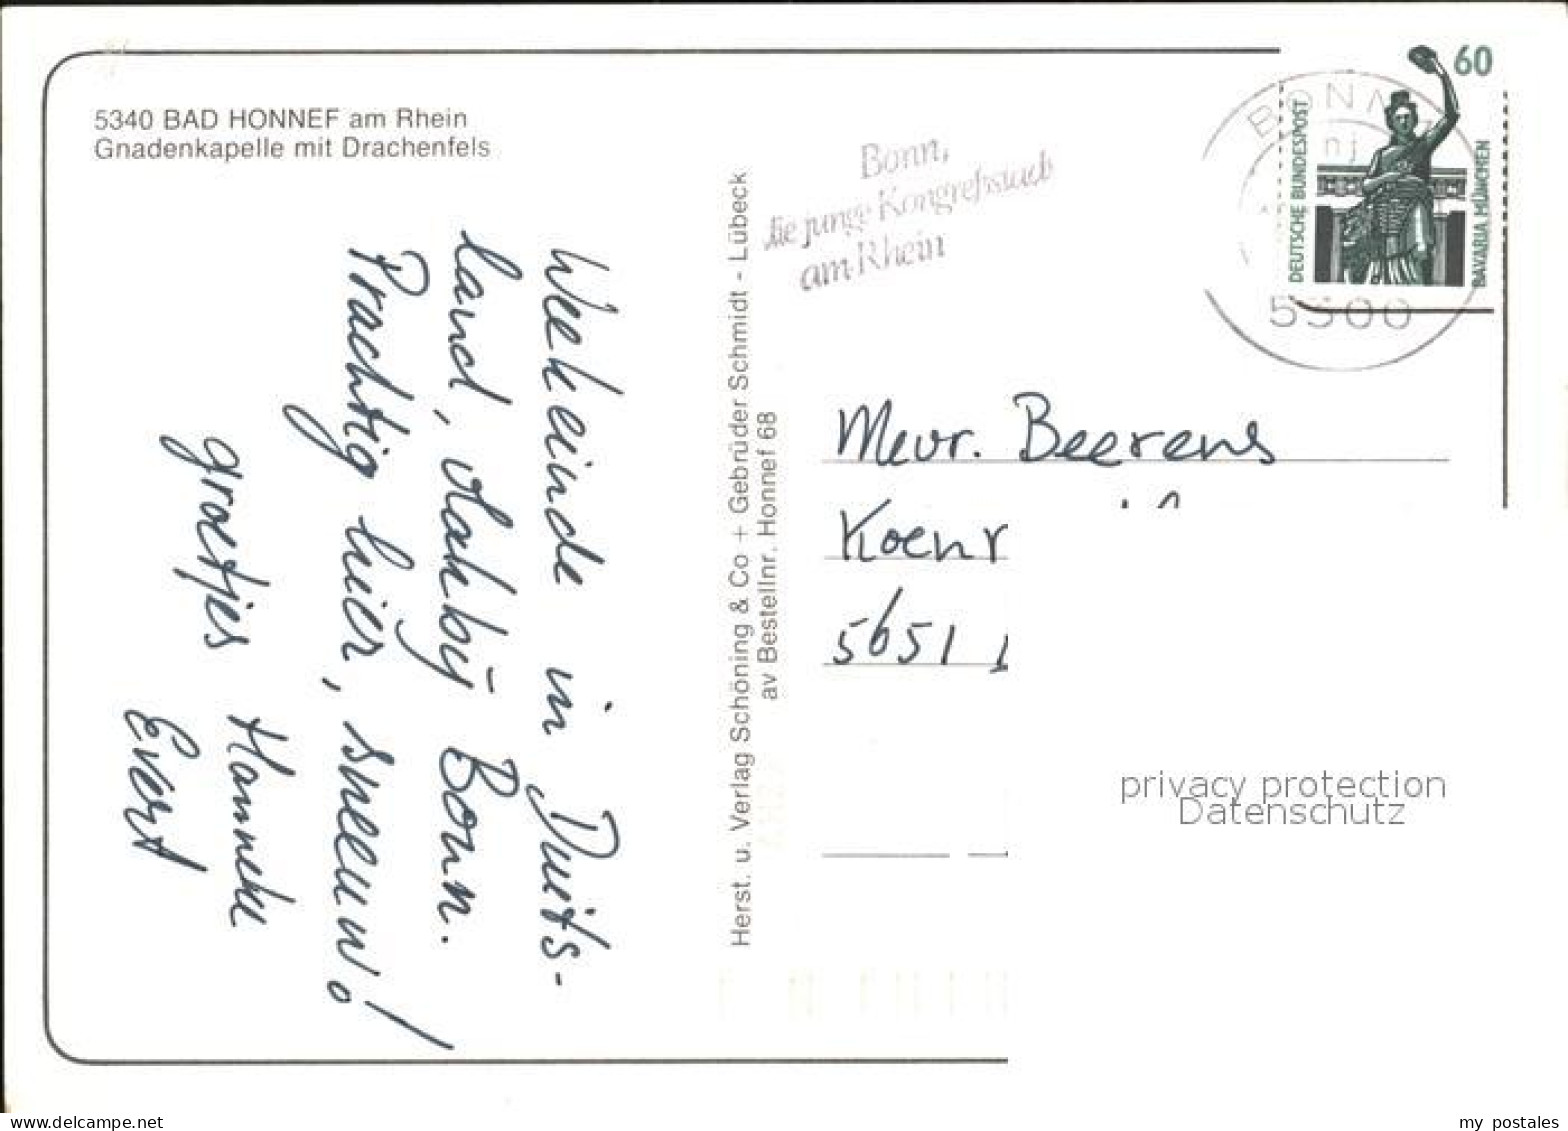 5340 BAD HONNEF am Rhein
Gnadenkapelle mit Drachenfels
Weekeinde in Duits-
land, vlakbij Bonn.
Prachtig hier,
groetjes Hanneke
Evert
Herst. u. Verlag Schöning & Co + Gebrüder Schmidt - Lübeck
av Bestellnr. Honnef 68
Bonn,
die junge Kongreßstadt
am Rhein
BONN
nj
5300
60
DEUTSCHE BUNDESPOST
BAVARIA MÜNCHEN
Mevr. Beerens
Koenr
5651
privacy protection
Datenschutz
delcampe.net
my postales